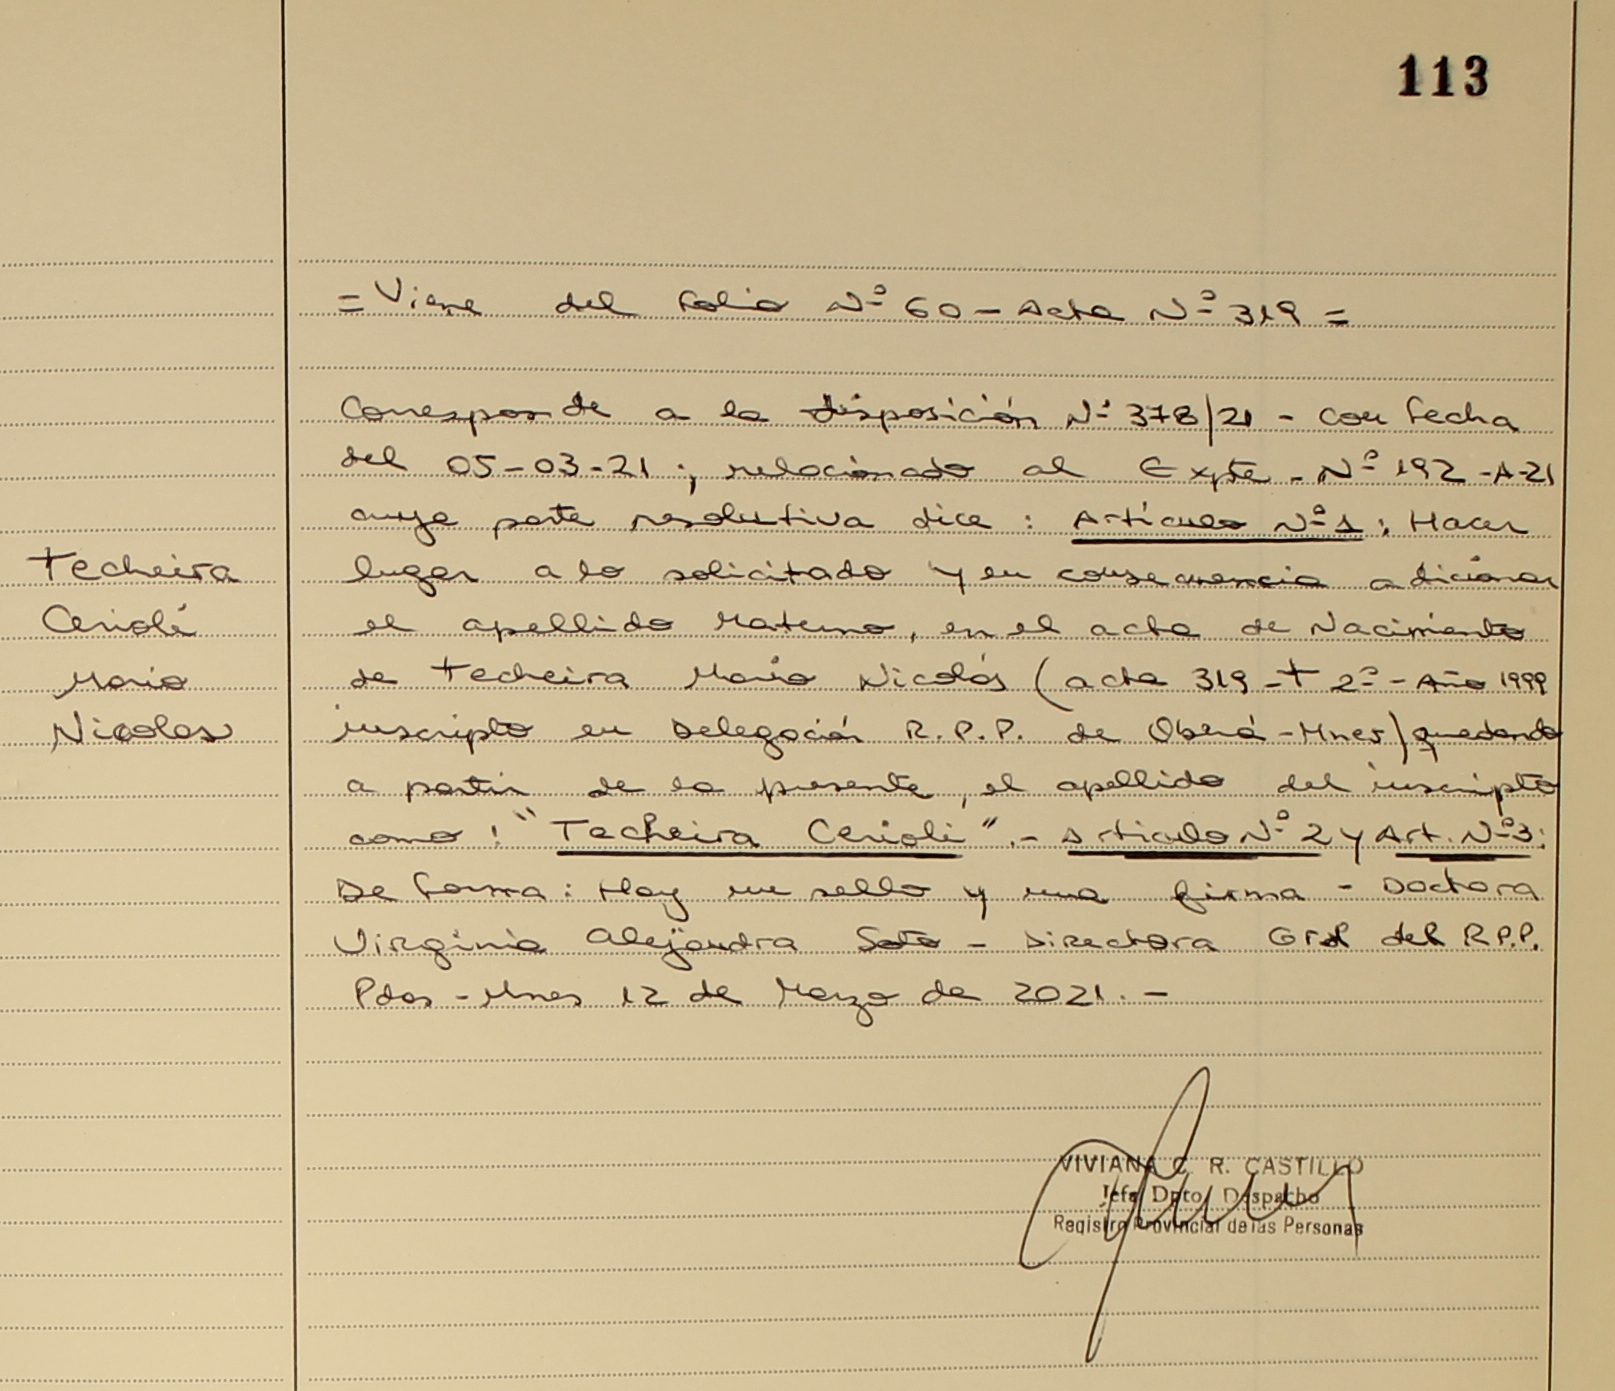 113
= Viene del folio Nº 60 - Acta Nº 319 =
Corresponde a la disposición Nº 378/21 - con fecha
del 05-03-21; relacionado al Expte - Nº 192 -A-21
cuya parte resolutiva dice: Artículo Nº 1: Hacer
Techeira
lugar a lo solicitado y en consecuencia adicionar
Cerioli
el apellido Materno, en el acta de Nacimiento
Mario
de Techeira Mario Nicolás (acta 319 - t 2º - Año 1999
Nicolas
inscripto en Delegación R.P.P. de Oberá - Mnes) quedando
a partir de la presente, el apellido del inscripto
como: "Techeira Cerioli". - Articulo Nº 2 y Art. Nº 3:
De forma: Hay un sello y una firma - Doctora
Virginia Alejandra Soto - Directora Gral del R.P.P.
Pdas - Mnes 12 de Marzo de 2021. -
VIVIANA C. R. CASTILLO
Jefa Dpto. Despacho
Registro Provincial de las Personas